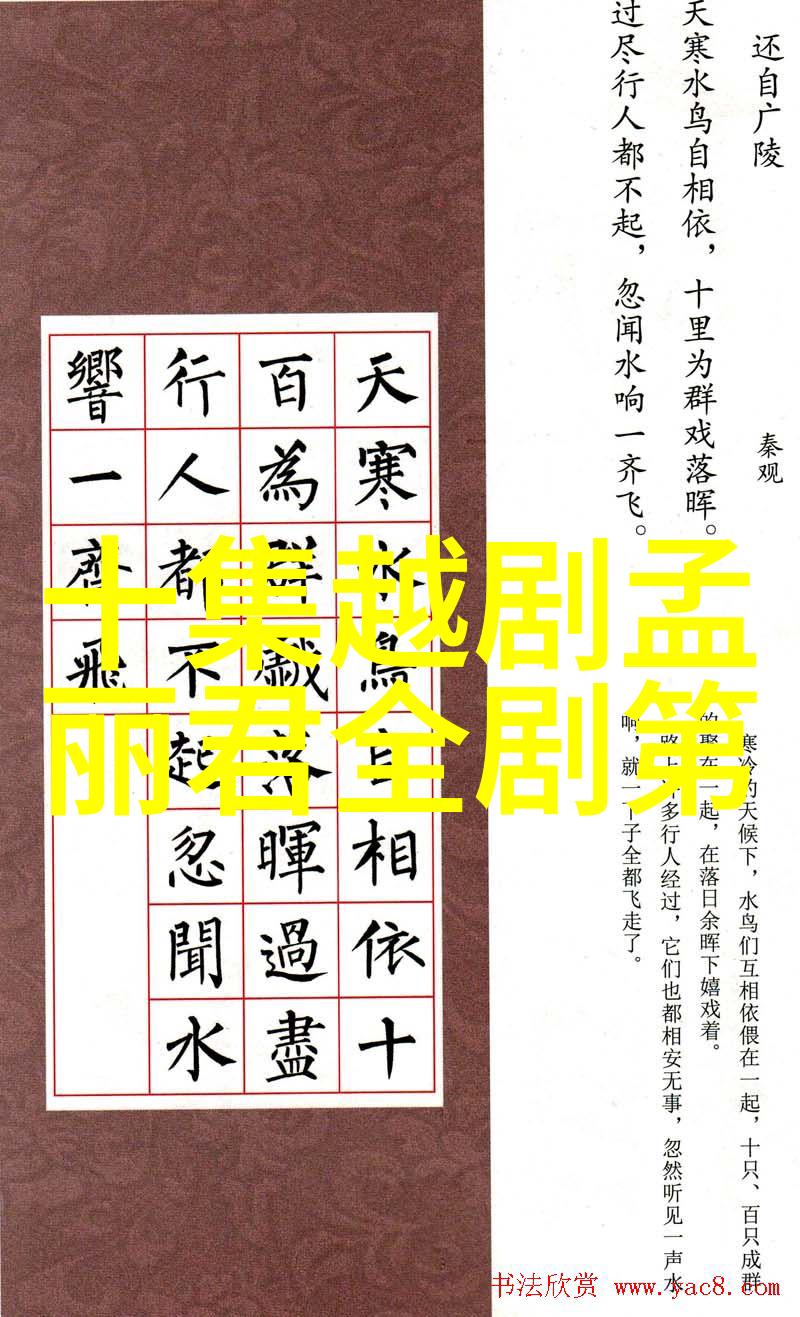 还自广陵
秦观
天寒水鸟自相依，十里为群戏落晖。
过尽行人都不起，忽闻水响一齐飞。
寒冷的天候下，水鸟们互相依偎在一起，十只、百只成群
的聚在一起，在落日余晖下嬉戏着。
路上许多行人经过，它们也都相安无事，忽然听见一声水
响，就一下子全都飞走了。
天寒水鳥自相依十
百為群戲落暉過盡
行人都不起忽聞水
響一齊飛
十集越剧孟
丽君全剧第
书法欣赏 www.yac8.com